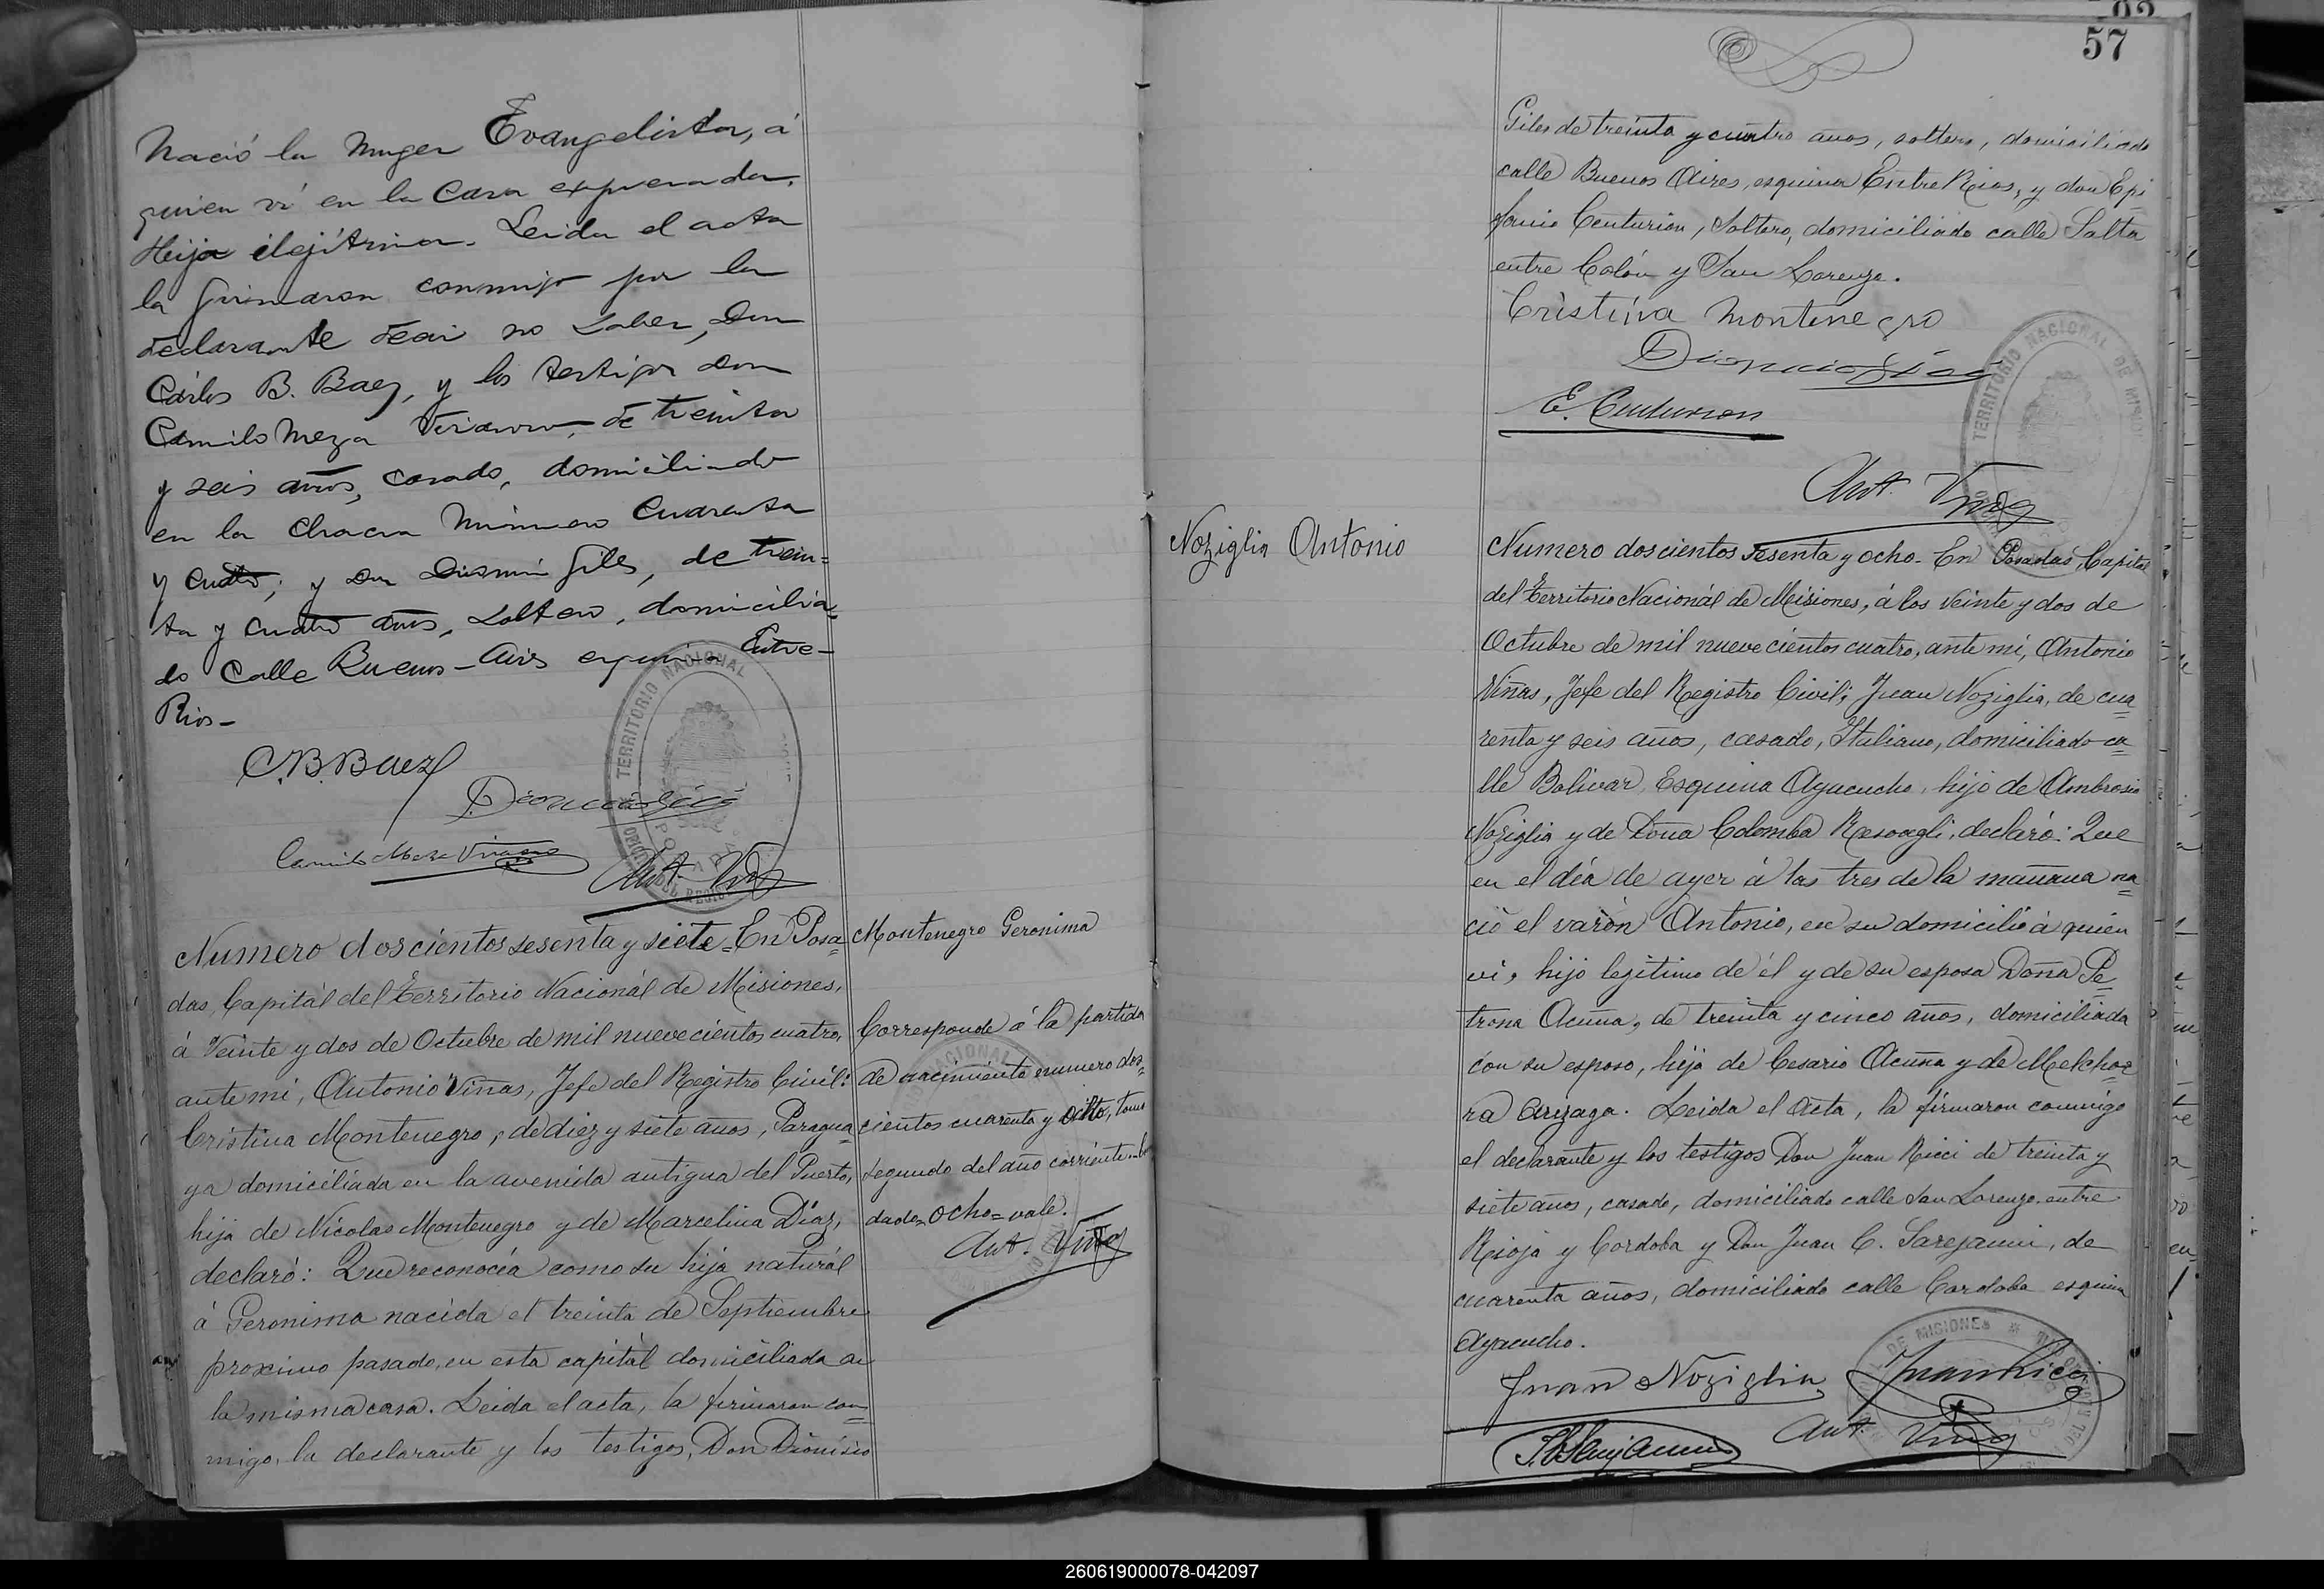 Nació la muger Evangelista, á
quien ví en la casa expresada.
Hija ilejítima. Leida el acta
la firmaron conmigo por la
declarante decir no saber, Don
Cárlos B. Baez, y los testigos don
Camilo Meza de treinta
y seis años, casado, domiciliado
en la chacra número cuarenta
y cuatro; y Don Giles, de trein=
ta y cuatro años, soltero, domicilia
do Calle Buenos-Aires esquina Entre-
Rios-
C.B. Baez
Camilo Meza
Ant. Viñas
TERRITORIO NACIONAL
Numero doscientos sesenta y siete = En Posa=
das, Capitál del Territorio Nacionál de Misiones,
á veinte y dos de Octubre de mil nuevecientos cuatro,
ante mi, Antonio Viñas, Jefe del Registro Civil:
Cristina Montenegro, de diez y siete años, Paragua
ya domiciliada en la avenida antigua del Puerto,
hija de Nicolas Montenegro y de Marcelina Diaz,
declaró: Que reconocía como su hija naturál
á Geronima nacida el treinta de Septiembre
proximo pasado, en esta capitál domiciliada en
la misma casa. Leida el acta, la firmaron con=
migo, la declarante y los testigos, Don Dionisio
Montenegro Geronima
Corresponde á la partida
de nacimiento numero dos=
cientos cuarenta y ocho, tomo
segundo del año corriente
dado = ocho = vale.
Ant. Viñas
57
Giles de treinta y cuatro años, soltero, domiciliado
calle Buenos Aires, esquina Entre Rios, y don Epi
fanio Centurion, Soltero, domiciliado calle Salta
entre Colón y San Lorenzo.
Cristina Montenegro
E. Centurion
Ant. Viñas
TERRITORIO NACIONAL DE MISIONES
Noziglia Antonio
Numero doscientos sesenta y ocho - En Posadas, Capital
del Territorio Nacionál de Misiones, á los veinte y dos de
Octubre de mil nuevecientos cuatro, ante mi, Antonio
Viñas, Jefe del Registro Civil; Juan Noziglia, de cua
renta y seis años, casado, Italiano, domiciliado ca=
lle Bolivar Esquina Ayacucho, hijo de Ambrosio
Noziglia y de Doña Colomba declaró: Que
en el día de ayer á las tres de la mañana na=
ció el varón Antonio, en su domicilio á quien
vi, hijo legítimo de él y de su esposa Doña Pe=
trona Acuña, de treinta y cinco años, domiciliada
con su esposo, hija de Cesario Acuña y de Melcho=
ra Arzaga. Leida el Acta, la firmaron conmigo
el declarante y los testigos Don Juan Ricci de treinta y
siete años, casado, domiciliado calle San Lorenzo entre
Rioja y Cordoba y Don Juan C. de
cuarenta años, domiciliado calle Cordoba esquina
Ayacucho.
Juan Noziglia
Juan Ricci
Ant. Viñas
DE MISIONES
260619000078-042097